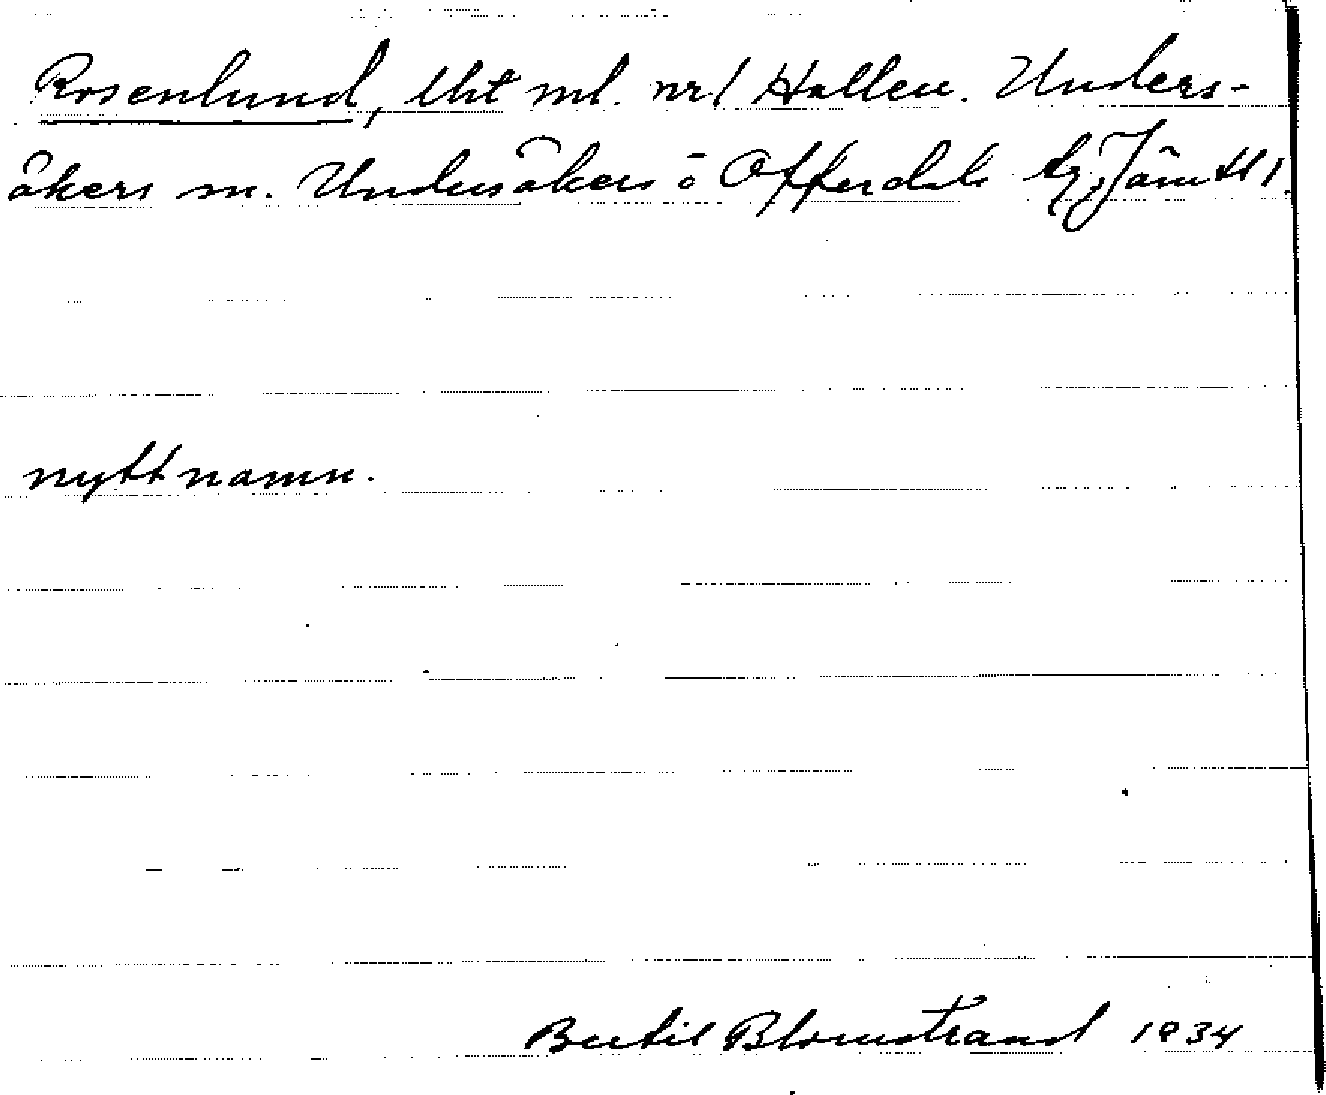 Rosenlund, lht ml. nr1 Hallen. Unders-
åkers sn. Undersåkers o Offerdals tg, Jämtl l.
nytt namn.
Bertil Blomstrand 1934